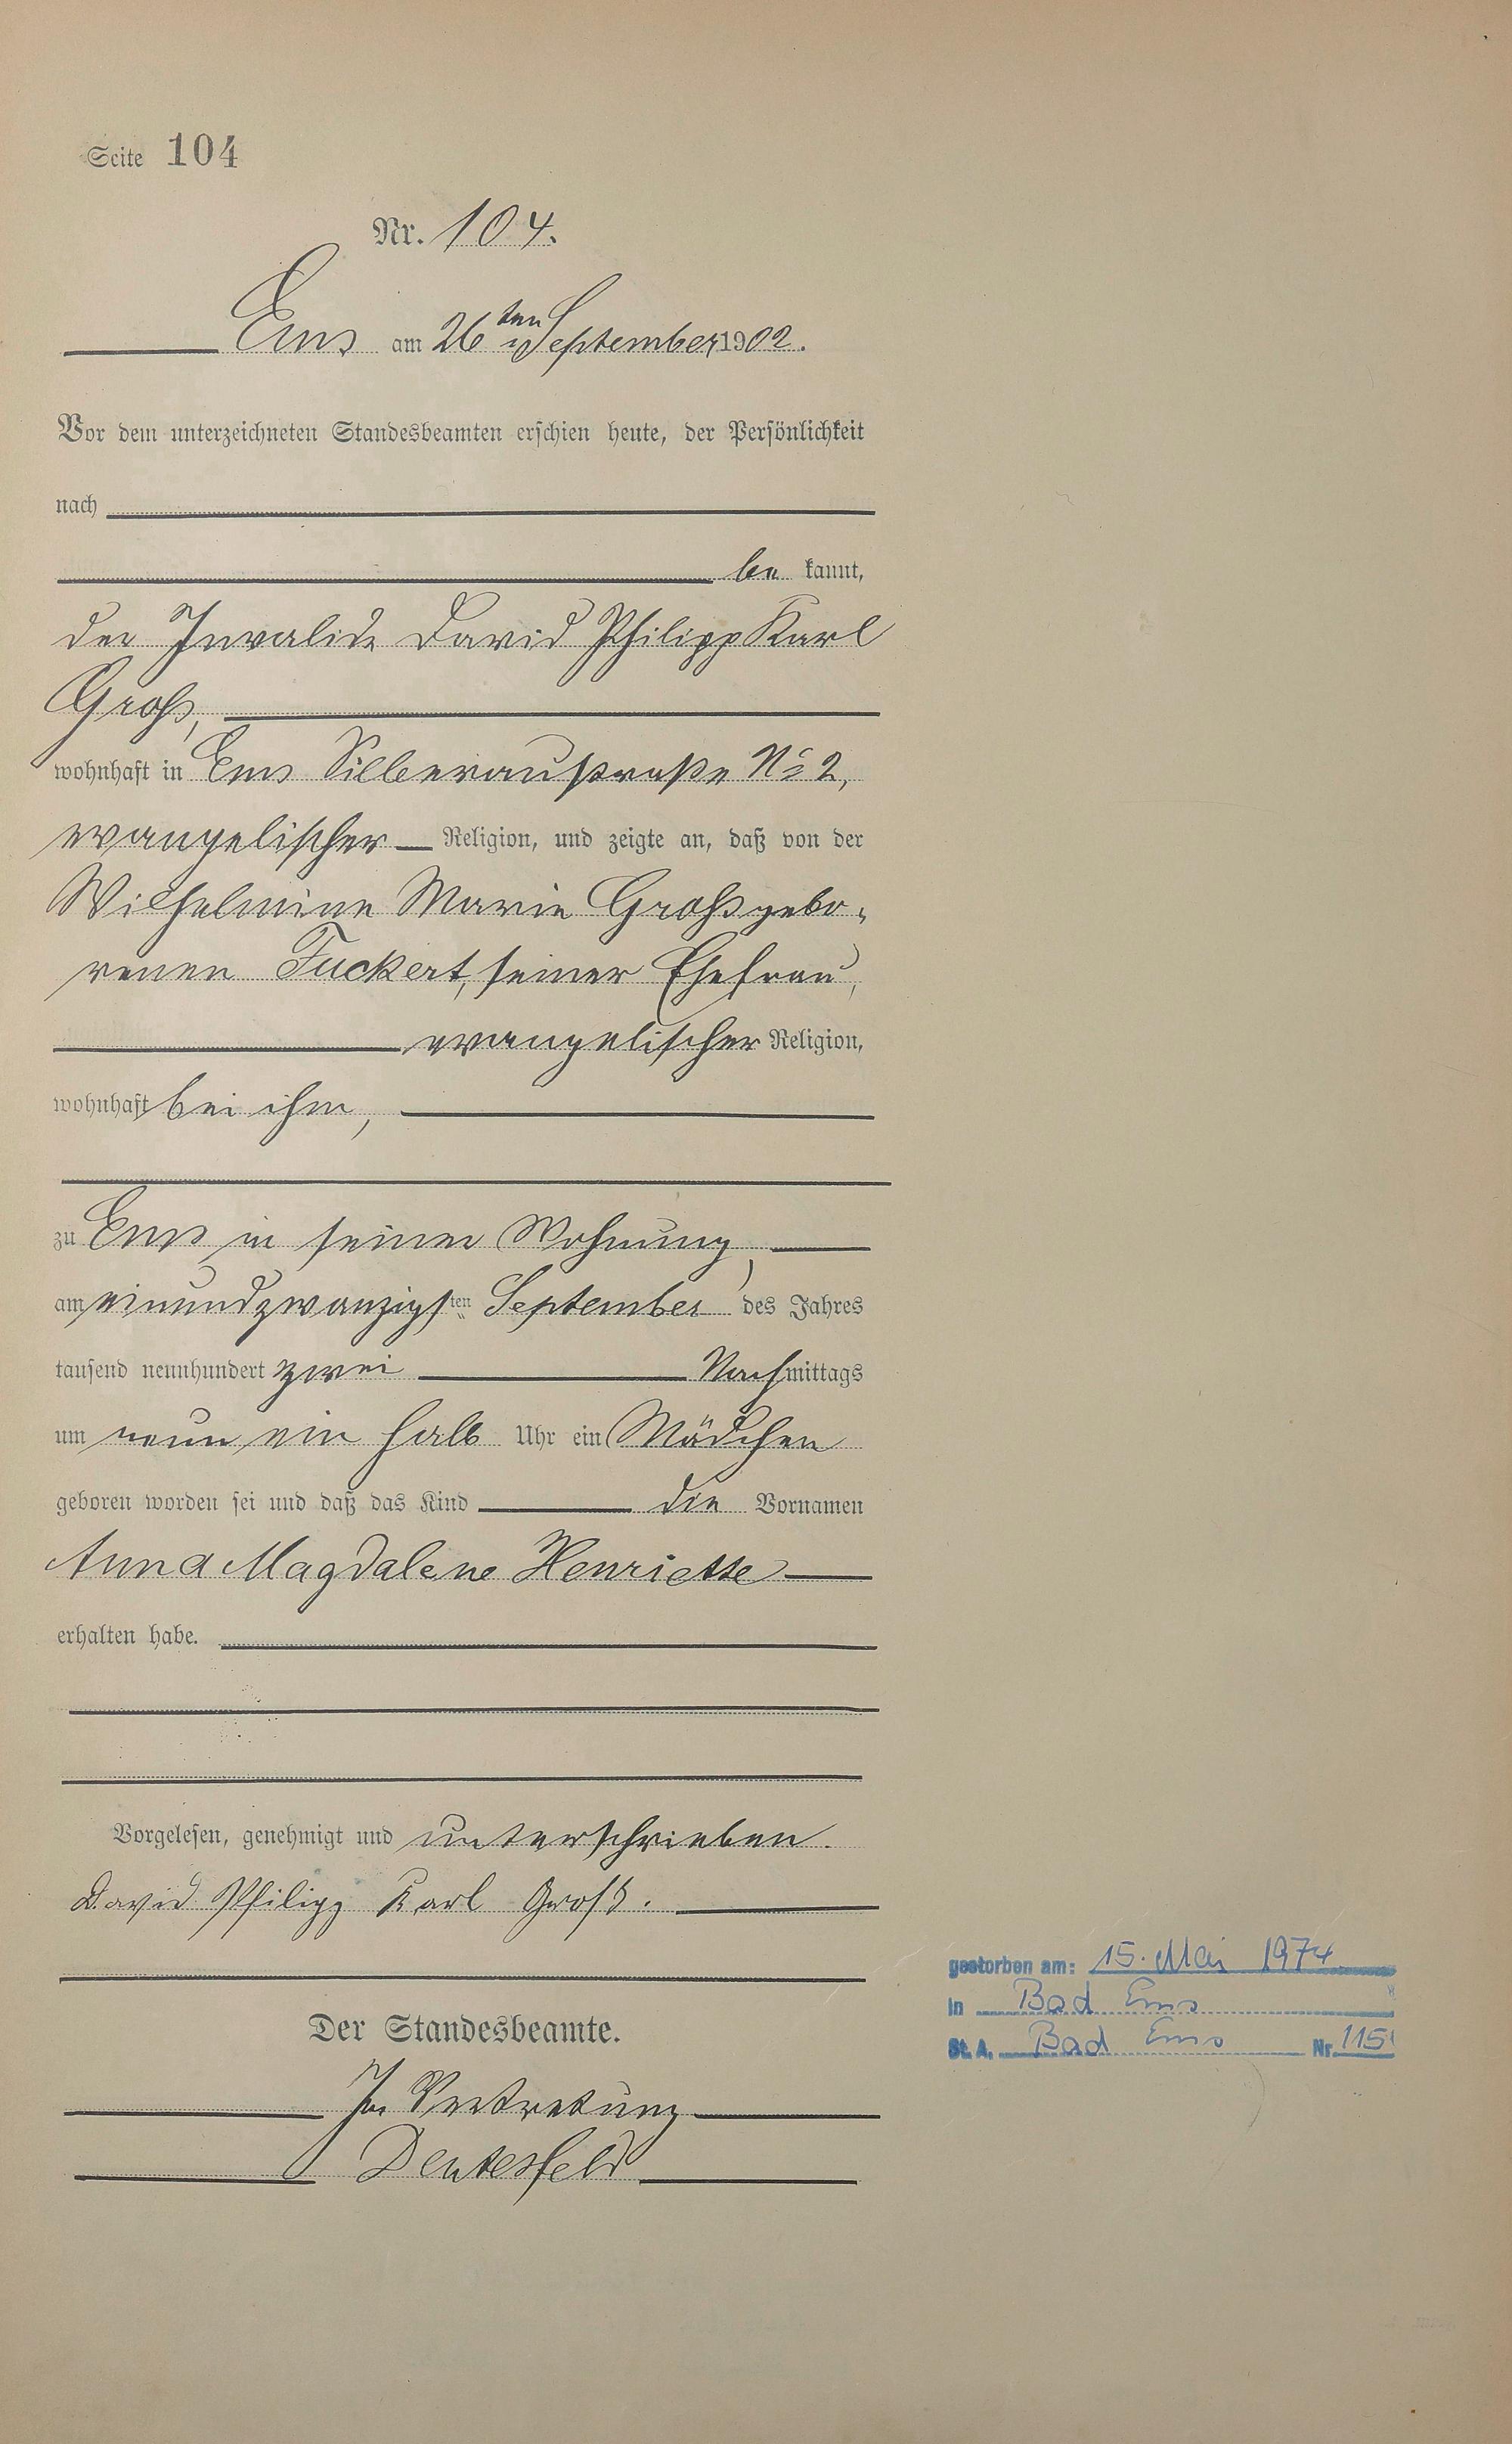 Seite 104
Nr. 104.
Ems am 26ten September 1902.
Vor dem unterzeichneten Standesbeamten erschien heute, der Persönlichkeit
nach
be kannt,
der Invalide David Philipp Karl
Groß,
wohnhaft in Ems Silberaustraße No 2,
evangelischer Religion, und zeigte an, daß von der
Wilhelmine Marie Groß gebo-
renen Fuckert, seiner Ehefrau,
evangelischer Religion,
wohnhaft bei ihm,
zu Ems in seiner Wohnung,
am einundzwanzigsten September des Jahres
tausend neunhundert zwei Nachmittags
um neun ein halb Uhr ein Mädchen
geboren worden sei und daß das Kind die Vornamen
Anna Magdalene Henriette
erhalten habe.
Vorgelesen, genehmigt und unterschrieben.
David Philipp Karl Groß.
Der Standesbeamte.
In Vertretung
Deutesfeld
gestorben am: 15. Mai 1974
in Bad Ems
St. A. Bad Ems Nr. 115